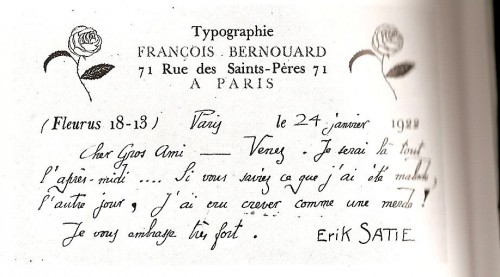 Typographie
FRANÇOIS BERNOUARD
71 Rue des Saints-Pères 71
A PARIS
(Fleurus 18-13) Paris le 24 janvier 1922
Cher Gros Ami — Venez. Je serai là tout
l'après-midi .... Si vous saviez ce que j'ai été malade,
l'autre jour, j'ai cru crever comme une merde !
Je vous embrasse très fort. Erik SATIE